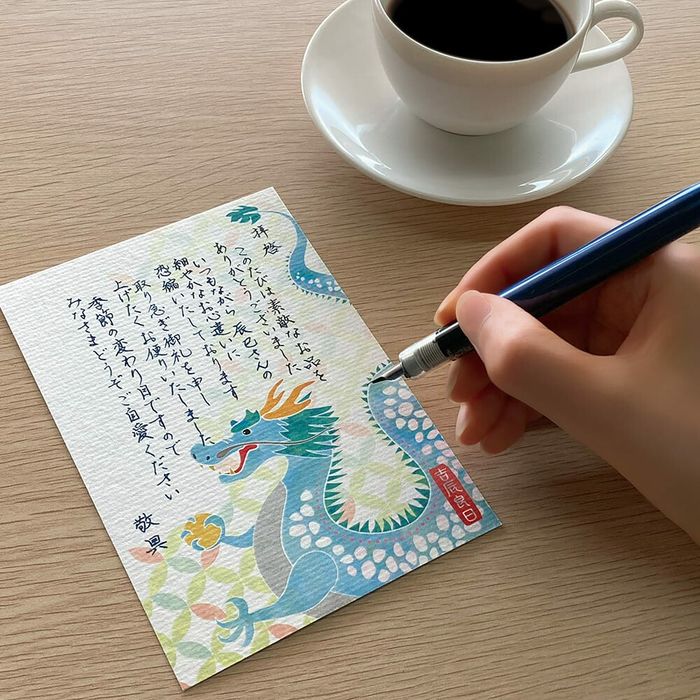 拝啓
このたびは素敵なお品を
ありがとうございました
いつもながら 辰巳さんの
細やかなお心遣いに
恐縮いたしております
取り急ぎ御礼を申し
上げたくお便りいたしました
季節の変わり目ですので
みなさまどうぞご自愛ください
敬具
吉辰良日